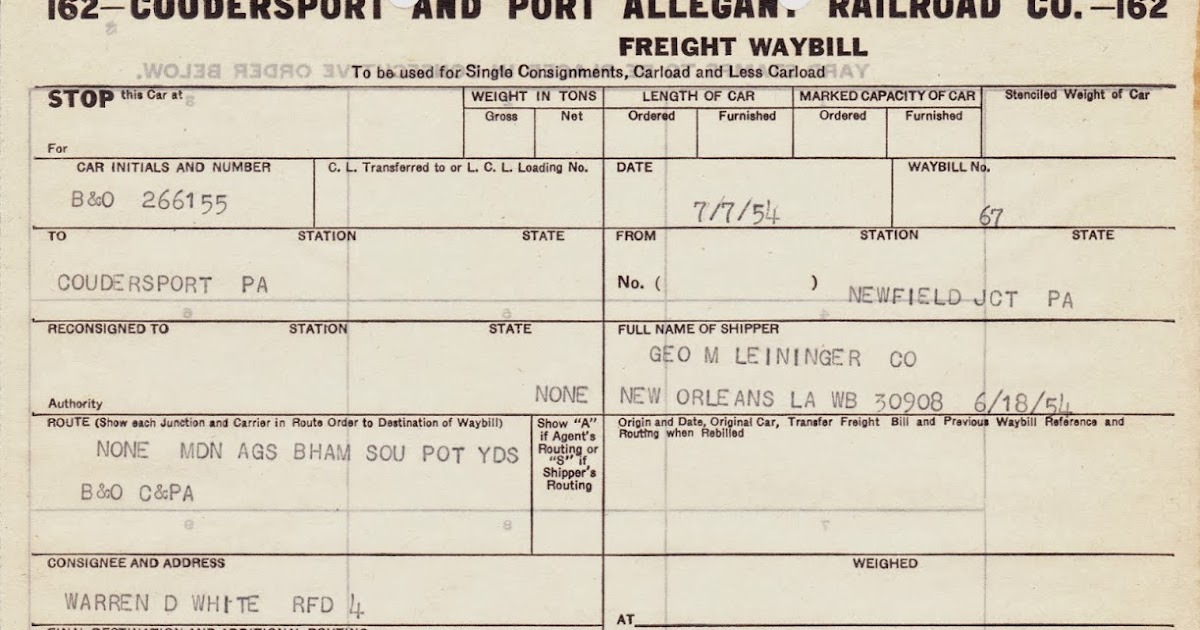 162—COUDERSPORT AND PORT ALLEGANY RAILROAD CO.—162
FREIGHT WAYBILL
YARD STAMPS TO BE PLACED IN CONSECUTIVE ORDER BELOW.
To be used for Single Consignments, Carload and Less Carload
STOP this Car at
WEIGHT IN TONS
LENGTH OF CAR
MARKED CAPACITY OF CAR
Stenciled Weight of Car
Gross Net Ordered Furnished Ordered Furnished
For
CAR INITIALS AND NUMBER
C. L. Transferred to or L. C. L. Loading No.
DATE
WAYBILL No.
B&O 266155
7/7/54
67
TO STATION STATE
FROM STATION STATE
COUDERSPORT PA
No. ( )
NEWFIELD JCT PA
6 5 4
RECONSIGNED TO STATION STATE
FULL NAME OF SHIPPER
GEO M LEININGER CO
NONE
NEW ORLEANS LA WB 30908 6/18/54
Authority
ROUTE (Show each Junction and Carrier in Route Order to Destination of Waybill)
NONE MDN AGS BHAM SOU POT YDS
B&O C&PA
Show "A"
if Agent's
Routing or
"S" if
Shipper's
Routing
Origin and Date, Original Car, Transfer Freight Bill and Previous Waybill Reference and
Routing when Rebilled
9 8 7
CONSIGNEE AND ADDRESS
WEIGHED
WARREN D WHITE RFD 4
AT
FINAL DESTINATION AND ADDITIONAL ROUTING